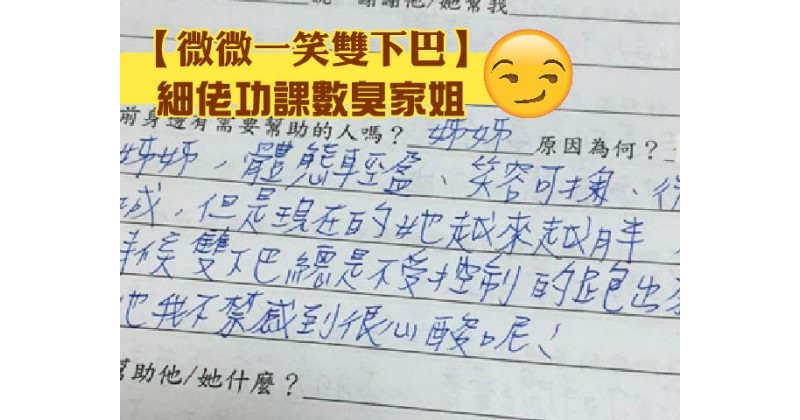 說"謝謝他/她幫我
【微微一笑雙下巴】
細佬功課數臭家姐
前身邊有需要幫助的人嗎？姊姊 原因為何？
姊姊，體態輕盈、笑容可掬、
城，但是現在的她越來越胖
時候雙下巴總是不受控制的跑出來
她我不禁感到很心酸呢！
幫助他/她什麼？